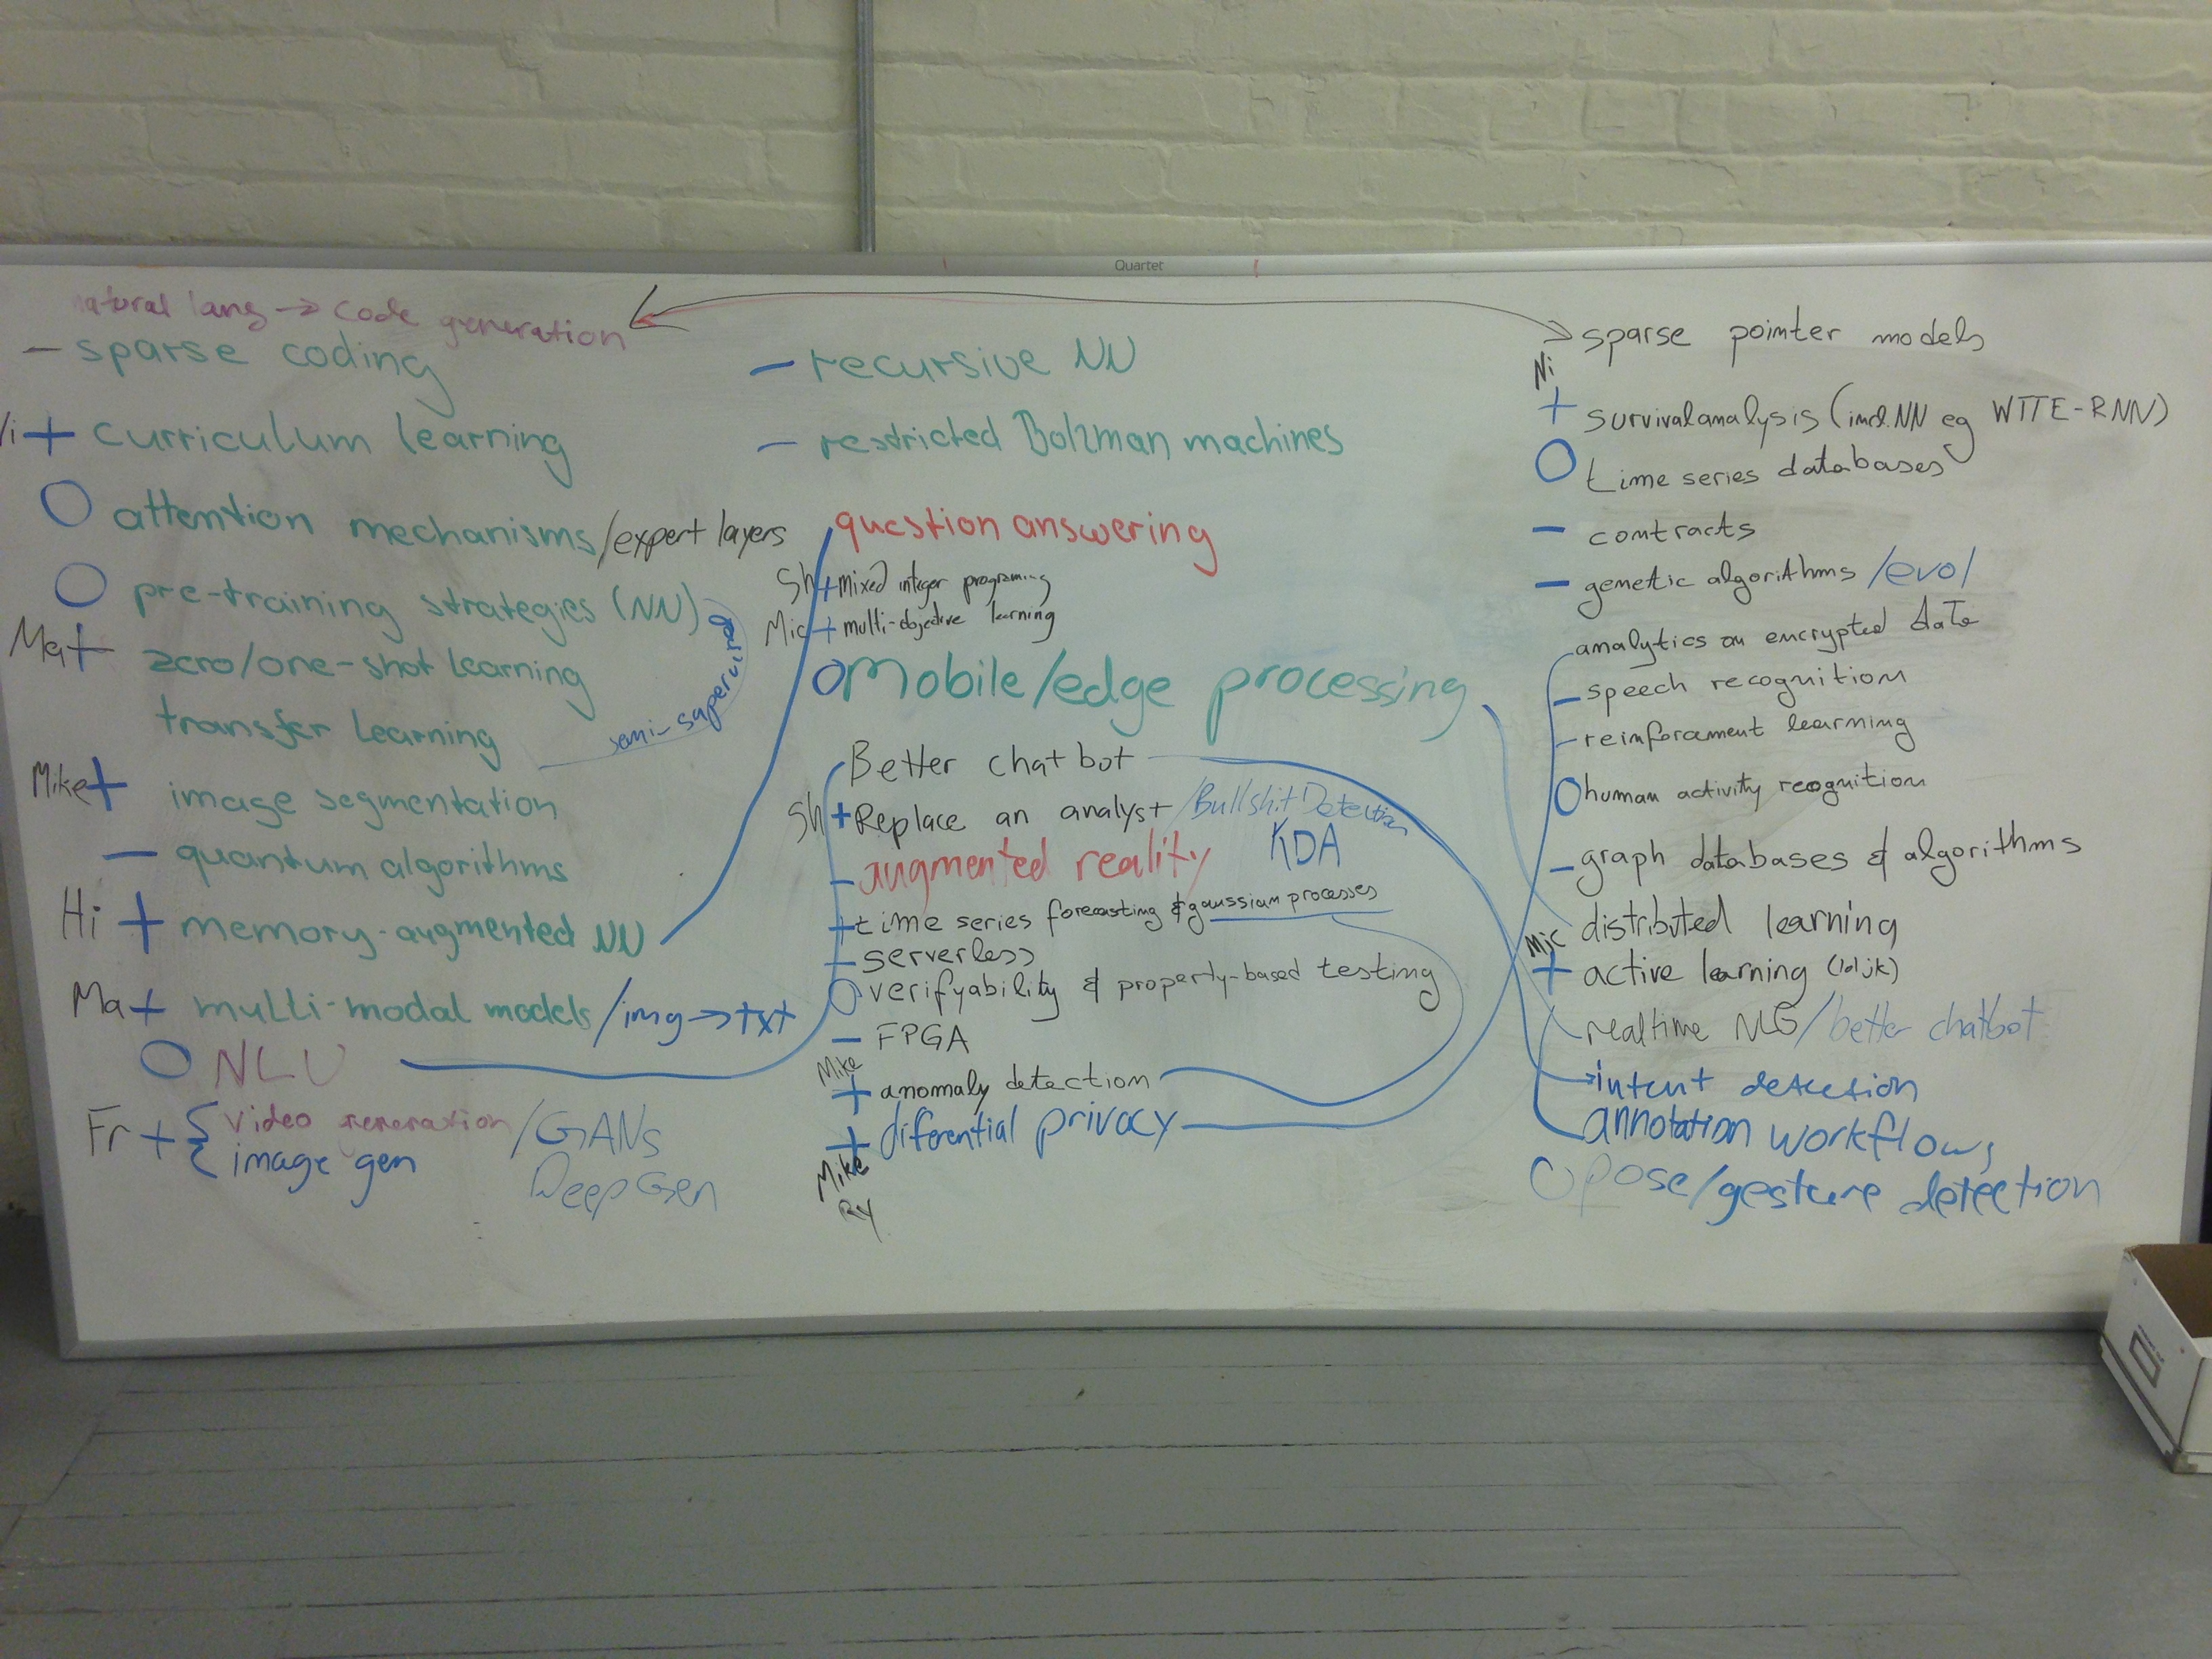 Quartet
natural lang → code generation
– sparse coding
Ni + curriculum learning
O attention mechanisms/expert layers
O pre-training strategies (NN)
semi-supervised
Ma + zero/one-shot learning
transfer learning
Mike + image segmentation
– quantum algorithms
Hi + memory-augmented NN
Ma + multi-modal models/img→txt
O NLU
Fr + { video generation /GANs
image gen
DeepGen
– recursive NN
– restricted Bolzman machines
question answering
Sh + mixed integer programing
Mic + multi-objective learning
O Mobile/edge processing
Better chat bot
Sh + Replace an analyst /Bullshit Detection
KDA
– augmented reality
+ time series forecasting & gaussian processes
– serverless
O verifyability & property-based testing
– FPGA
Mike + anomaly detection
+ diferential privacy
Mike
Ry
sparse pointer models
Ni
+ survival analysis (incl. NN eg WTTE-RNN)
O time series databases
– contracts
– genetic algorithms /evol
analytics on encrypted data
– speech recognition
– reinforcement learning
O human activity recognition
– graph databases & algorithms
distributed learning
Mic + active learning (lol jk)
realtime NLG/better chatbot
→ intent detection
annotation workflows
O pose/gesture detection